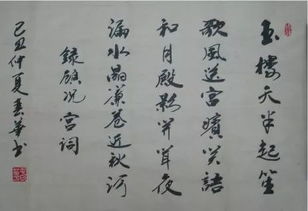 玉樓天半起笙
歌風送宫嬪笑語
和月殿影開闻夜
漏水晶簾卷近秋河
録顧况宫词
己丑仲夏華书